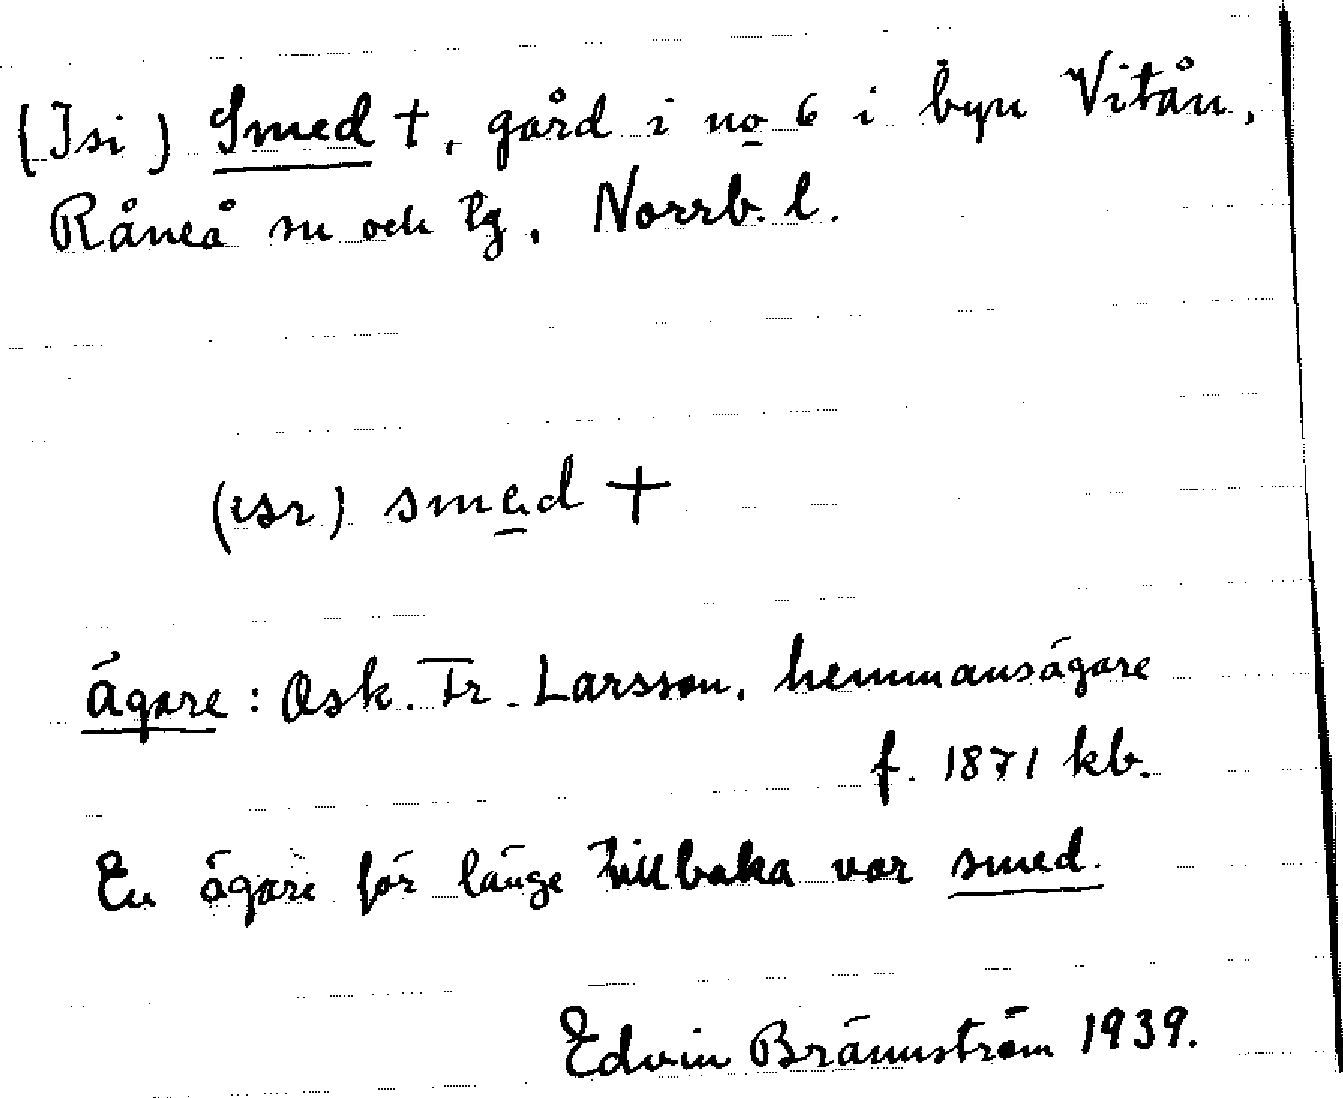 (Isi) Smed †, gård i no 6 i byn Vitån,
Råneå sn och tg, Norrb. l.
(ısr) smed †
ägare: Osk. Fr. Larsson, hemmansägare
f. 1871 kb.
En ägare för länge tillbaka var smed.
Edvin Brännström 1939.